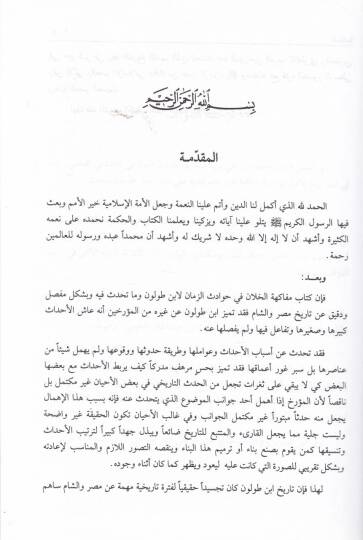 بسم الله الرحمن الرحيم
المقدّمة
الحمد لله الذي أكمل لنا الدين وأتم علينا النعمة وجعل الأمة الإسلامية خير الأمم وبعث
فيها الرسول الكريم ﷺ يتلو علينا آياته ويزكينا ويعلمنا الكتاب والحكمة نحمده على نعمه
الكثيرة وأشهد أن لا إله إلا الله وحده لا شريك له وأشهد أن محمداً عبده ورسوله للعالمين
رحمة.
وبعد:
فإن كتاب مفاكهة الخلان في حوادث الزمان لابن طولون وما تحدث فيه وبشكل مفصل
ودقيق عن تاريخ مصر والشام فقد تميز ابن طولون عن غيره من المؤرخين أنه عاش الأحداث
كبيرها وصغيرها وتفاعل فيها ولم يفصلها عنه.
فقد تحدث عن أسباب الأحداث وعواملها وطريقة حدوثها ووقوعها ولم يهمل شيئاً من
عناصرها بل سبر غور أعماقها فقد تميز بحس مرهف مدركاً كيف يربط الأحداث مع بعضها
البعض كي لا يبقي على ثغرات تجعل من الحدث التاريخي في بعض الأحيان غير مكتمل بل
ناقصاً لأن المؤرخ إذا أهمل أحد جوانب الموضوع الذي يتحدث عنه فإنه بسبب هذا الإهمال
يجعل منه حدثاً مبتوراً غير مكتمل الجوانب وفي غالب الأحيان تكون الحقيقة غير واضحة
وليست جلية مما يجعل القارىء والمتتبع للتاريخ ضائعاً ويبذل جهداً كبيراً لترتيب الأحداث
وتنسيقها كمن يقوم بصنع بناء أو ترميم هذا البناء وينقصه التصور اللازم والمناسب لإعادته
وبشكل تقريبي للصورة التي كانت عليه ليعود ويظهر كما كان أثناء وجوده.
لهذا فإن تاريخ ابن طولون كان تجسيداً حقيقياً لفترة تاريخية مهمة عن مصر والشام ساهم